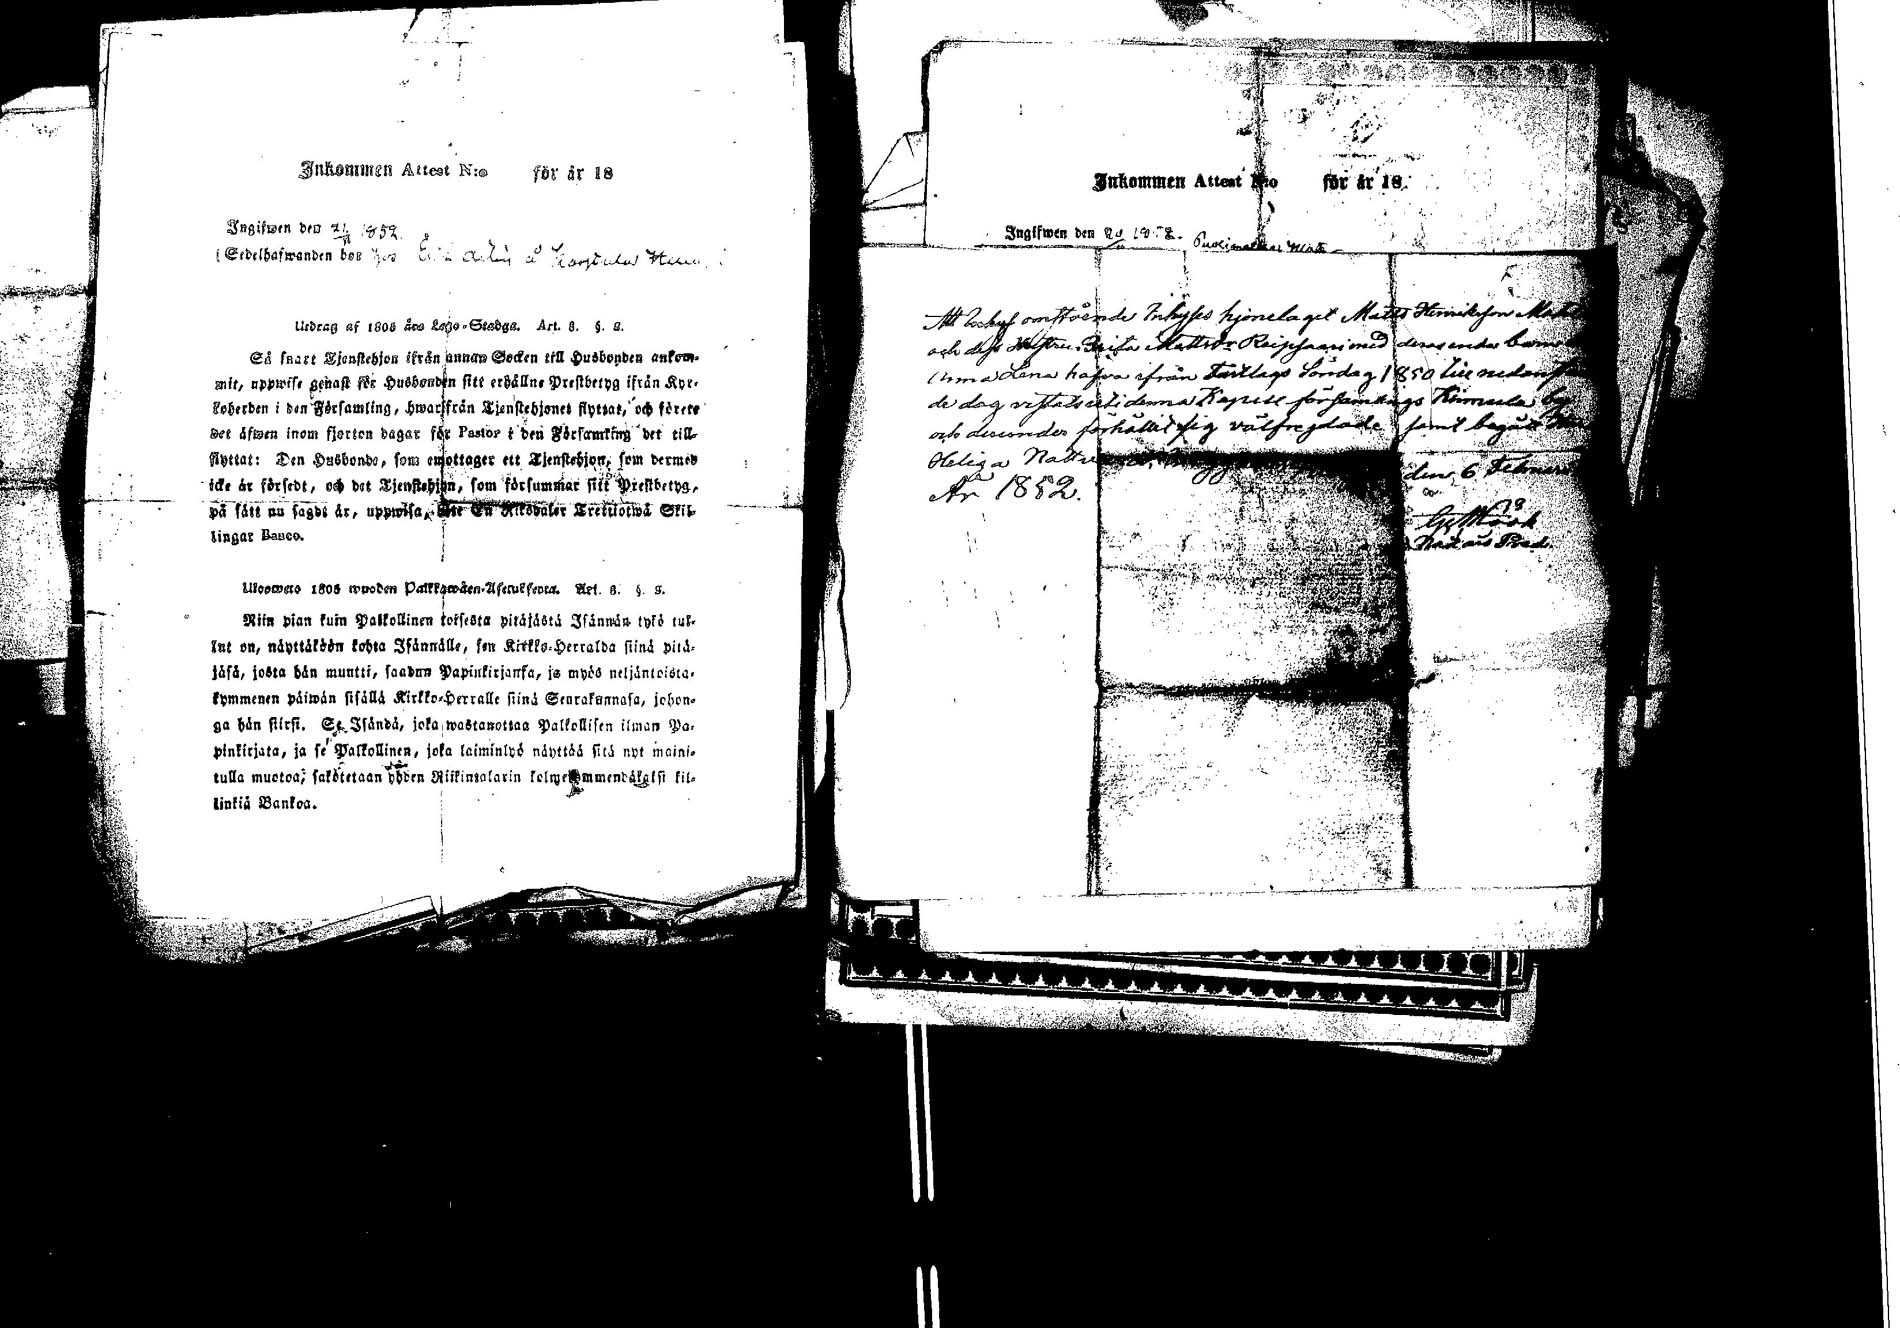 Inkommen Attest N:o för år 18
Ingifwen den 21 1852.
(Sedelhafwanden hos
Utdrag af 1805 års Lego-Stadga. Art. 3. §. 2.
Så snart Tjenstehjon ifrån annan Socken till Husbonden ankom-
mit, uppwise genast för Husbonden sitt erhållne Prestbetyg ifrån Kyr-
koherden i den Församling, hwarifrån Tjenstehjonet flyttat, och förete
det äfwen inom fjorton dagar för Pastor i den Församling det till-
flyttat: Den Husbonde, som emottager ett Tjenstehjon, som dermed
icke är försedt, och det Tjenstehjon, som försummar sitt Prestbetyg,
på sätt nu sagdt är, uppwisa, böte En Riksdaler Trettiotwå Skil-
lingar Banco.
Ulosweto 1805 wuoden Palkkawäen-Asetuksesta. Art. 3. §. 2.
Niin pian kuin Palkollinen toisesta pitäjästä Isännän tykö tul-
lut on, näyttäköön kohta Isännälle, sen Kirkko-Herralda siinä pitä-
jäsä, josta hän muutti, saadun Papinkirjansa, ja myös neljäntoista-
kymmenen päiwän sisällä Kirkko-Herralle siinä Seurakunnasa, johon-
ga hän siirsi. Se Isändä, joka wastanottaa Palkollisen ilman Pa-
pinkirjata, ja se Palkollinen, joka laiminlyö näyttää sitä nyt maini-
tulla muotoa, sakotetaan yhden Riikintalarin kolmekymmendäkaksi kil-
linkiä Bankoa.
Inkommen Attest N:o för år 18
Ingifwen den 20 1852.
Att Inhyses hjonelaget Matts Henriksson
och dess Hustru Brita Mattsdr Reipsaari med deras enda barn
Anna Lena hafva ifrån Fastlags Söndag 1850 till nedanst
de dag vistats uti denna Kapell församlings by
och derunder förhållit sig välfrejdade samt begått
Heliga den 6 Februari
År 1852.